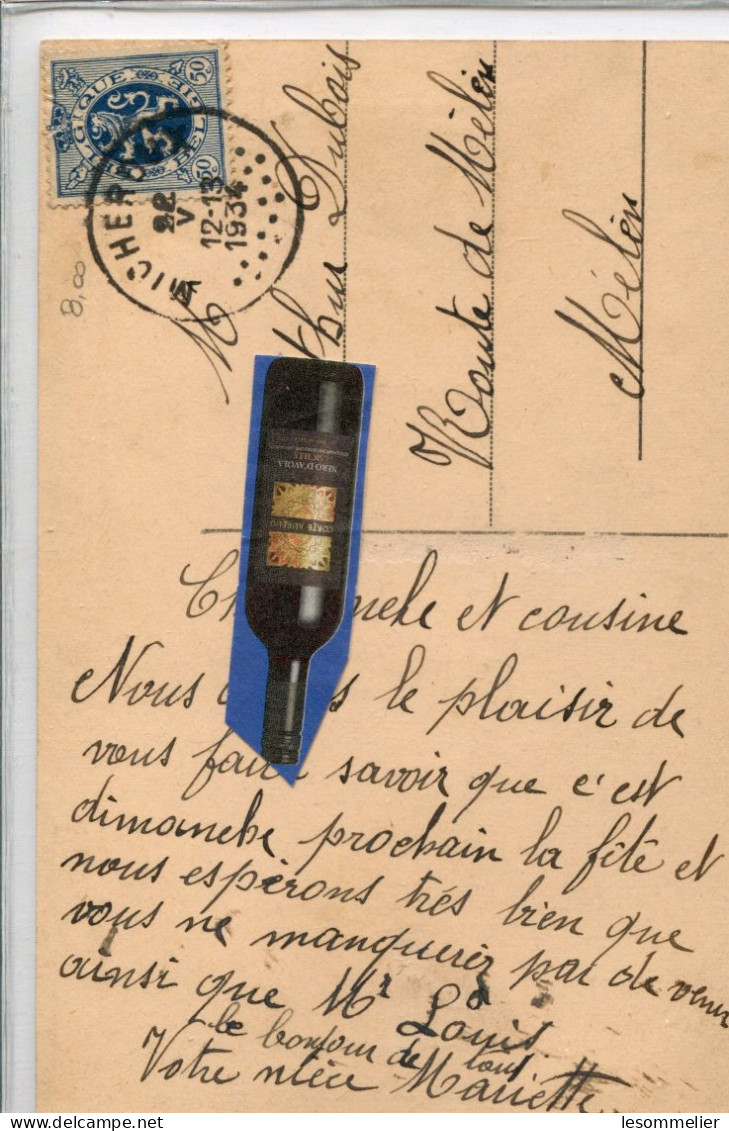 BELGIQUE BELGIE
50 50
MICHEROUX
22
V
12-13
1934
8,00
M
thur Dubois
Route de Mélen
Mélen
NERO D'AVOLA
SICILIA
CORTE AURELIO
et cousine
Nous le plaisir de
vous faire savoir que c'est
dimanche prochain la fête et
nous espérons très bien que
vous ne manquerez pas de venir
ainsi que Mr Louis
le bonjour de tous
Votre nièce Mariette
lesommelier